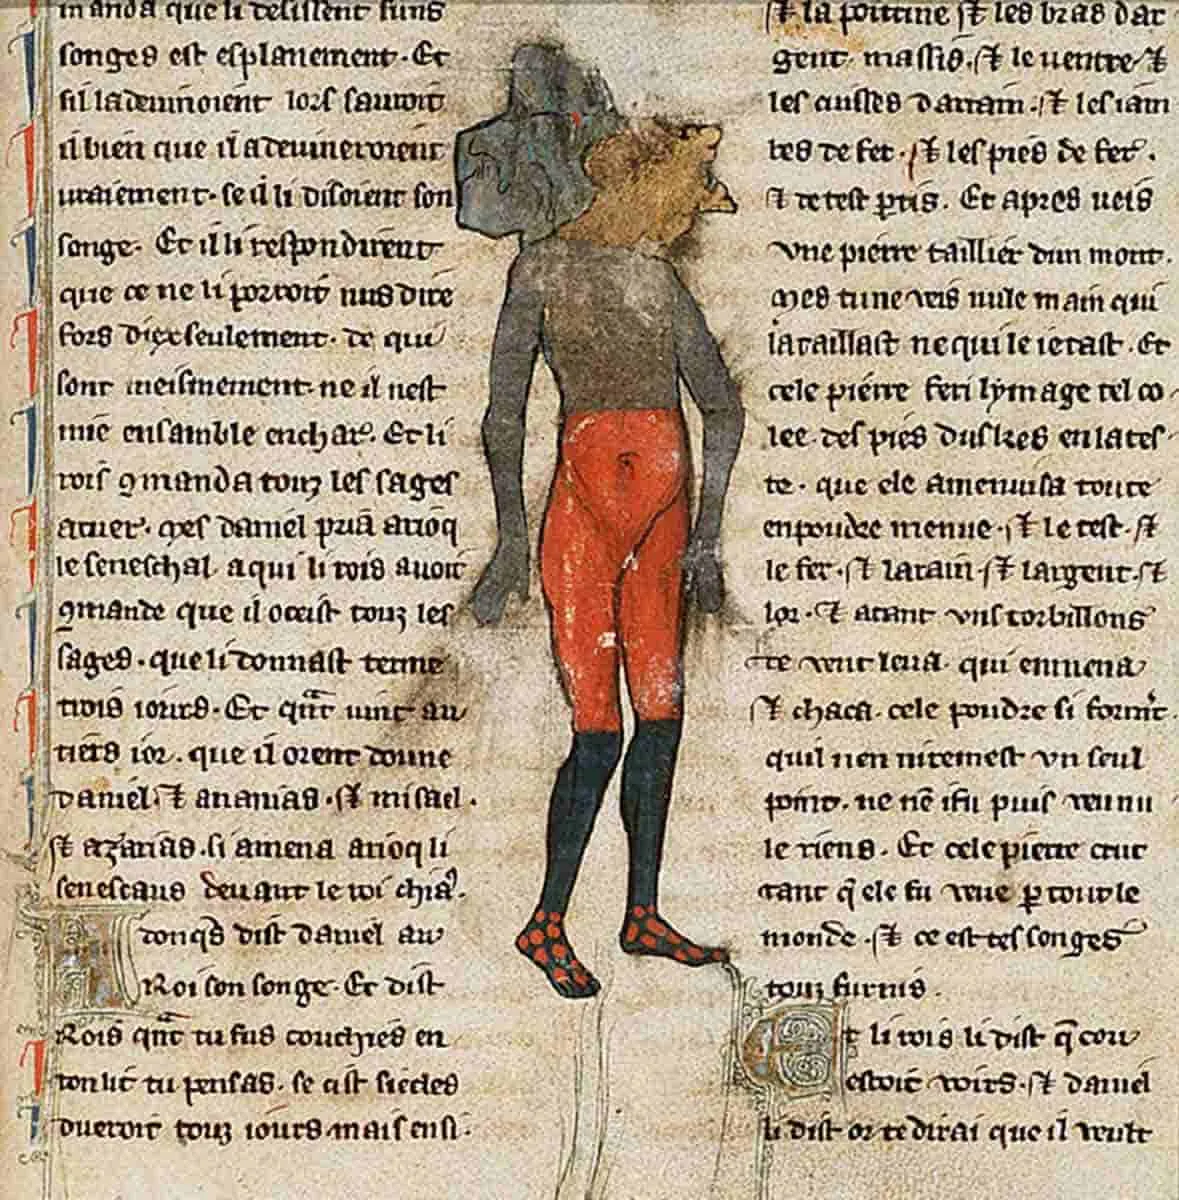 manda que li desissent sun
songes est esplanement. Et
sil la devinoient lors savroit
il bien que il a devineroient
vraiement. se il li disoient son
songe. Et il li respondirent
que ce ne li porroit nus dire
fors diex seulement. de qui
sont meismement. ne il nest
mie ensamble enchar. Et li
rois 9manda touz les sages
atuer. mes daniel pria arioq
le seneschal. a qui li rois avoit
9mande que il oceist touz les
sages. que li donnast terme
trois iours. Et qnt vint au
tiers ior. que il orent donne
daniel. et ananias. et misael.
et azarias. si amena arioq li
senescaus devant le roi
donqs dist daniel au
Roi son songe. Et dist
Rois qnt tu fus couchies en
ton lit tu pensas. se cist siecles
dueroit touz iours mais ensi.
et la poitrine et les bras dar
gent massis. et le ventre et
les cuisses darrain. et les iam
bes de fer. et les pies de fer.
et de test ptis. Et apres veis
vne pierre taillier dun mont.
mes tu ne veis nule main qui
la taillast ne qui le ietast. Et
cele pierre feri lymage tel co
lee. des pies dusqes en la tes
te. que ele amenuisa toute
en poudre menue. et le test. et
le fer. et larain. et largent. et
lor. Et atant vns torbillons
de vent leva. qui enmena
et chaca. cele poudre si forment.
quil nen remest vn seul
point. ne ne puis venu
le riens. Et cele pierre crut
tant q ele fu veue p tout le
monde. et ce est tes songes
touz furnis.
Et li rois li dist q cou
estoit voirs. et daniel
li dist or te dirai que il veult